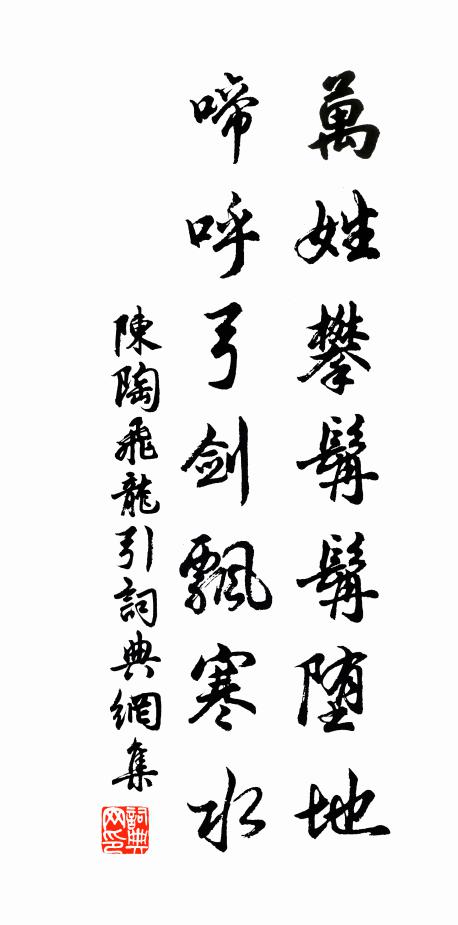 萬姓攀髯髯墮地
啼呼弓劍飄寒水
陳陶飛龍引詞典網集
詞典網印